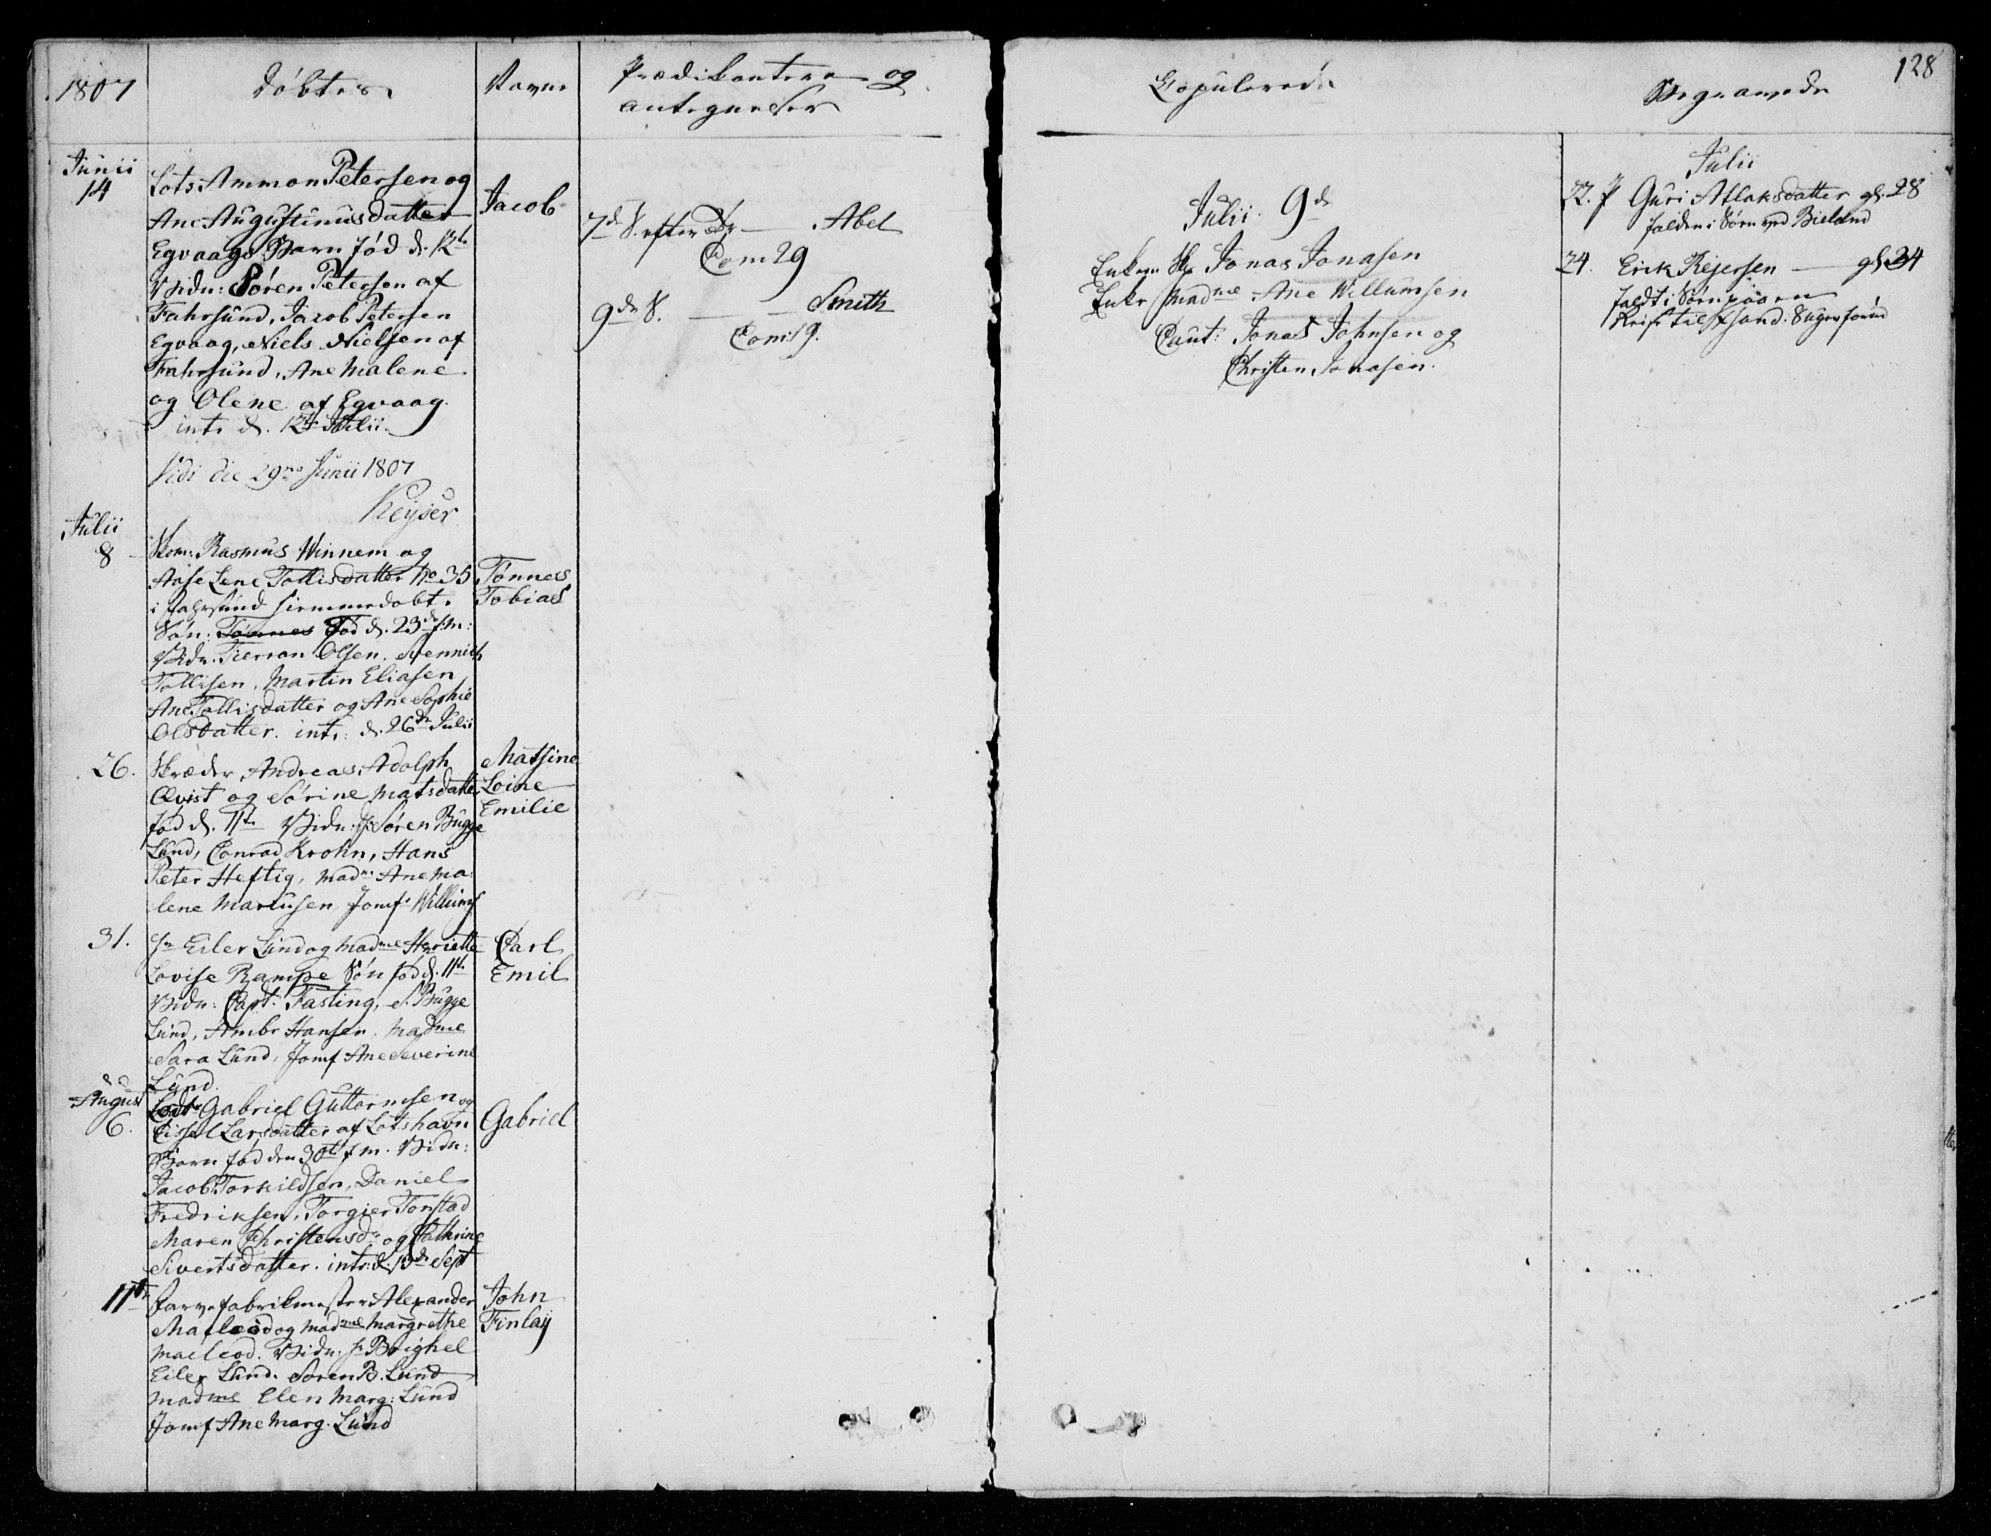 128
1807
Døbte
Navne
Prædikantere og
antegnelser
Copulerede
Begravede
Junii
14
Lots Ammon Petersen og
Ane Augustinusdatter
Egvaags Barn fød d. 12te
Vidn: Søren Petersen af
Fahrsund, Jacob Petersen
Egvaag, Niels Nielsen af
Fahrsund, Ane Malene
og Olene af Egvaag.
intr. d. 12te Julii
Jacob
Vidi die 29no Junii 1807
Keyser
Julii
8
Skom: Rasmus Winnem og
Aase Lene Tollisdatter No 35
i Fahrsund hiemmedøbt
Søn: Tønnes Fød d. 23de f. m:
Vidn. Tierran Olsen, Svennich
Tollisen, Martin Eliasen
Ane Tollisdatter og Ane Sophie
Olsdatter. intr: d. 26de Julii
Tønnes
Tobias
26.
Skræder Andreas Adolph
Qvist og Sørine Matsdatter
fød d. 11te Vidn: Hr Søren Bugge
Lund, Conrad Krohn, Hans
Peter Heftig, Madm. Ane Ma
lene Mariusen Jomf. Willums
Matsine
Loine
Emilie
31.
Hr Eiler Lund og Madme Henriette
Lovise Rampe Søn fød d. 11te
Vidn: Capt. Fasting, S. Bugge
Lund, Ambr Hansen, Madme
Sara Lund, Jomf Ane Severine
Lund.
Carl
Emil
August
6.
Lods Gabriel Guttormsen og
Cissel Larsdatter af Lotshavn
Barn fød den 30te f. m. Vidn:
Jacob Torkildsen, Daniel
Fredriksen, Torgier Tonstad
Maren Christensdr og Cathrine
Sivertsdatter. intr: d. 13de Sept
Gabriel
11te
Farvefabrikmester Alexander
Macleod og Madme Margrethe
Macleod. Vidn: Hr Beighel
Eiler Lund. Søren B. Lund
Madme Elen Marg: Lund
Jomf Ane Marg. Lund
John
Finlay
7de S. efter Tr — Abel
Com 29
9de S. — — Smith
Com: 9.
Julii 9de
Enkem. Jonas Jonasen
Enke Madme Ane Willumsen
Caut: Jonas Johnsen og
Christen Jonasen.
Julii
22. Guri Atlaksdatter gl. 28
falden i Søen ved Bieland
24. Erik Rejersen — gl. 34
faldt i Søen